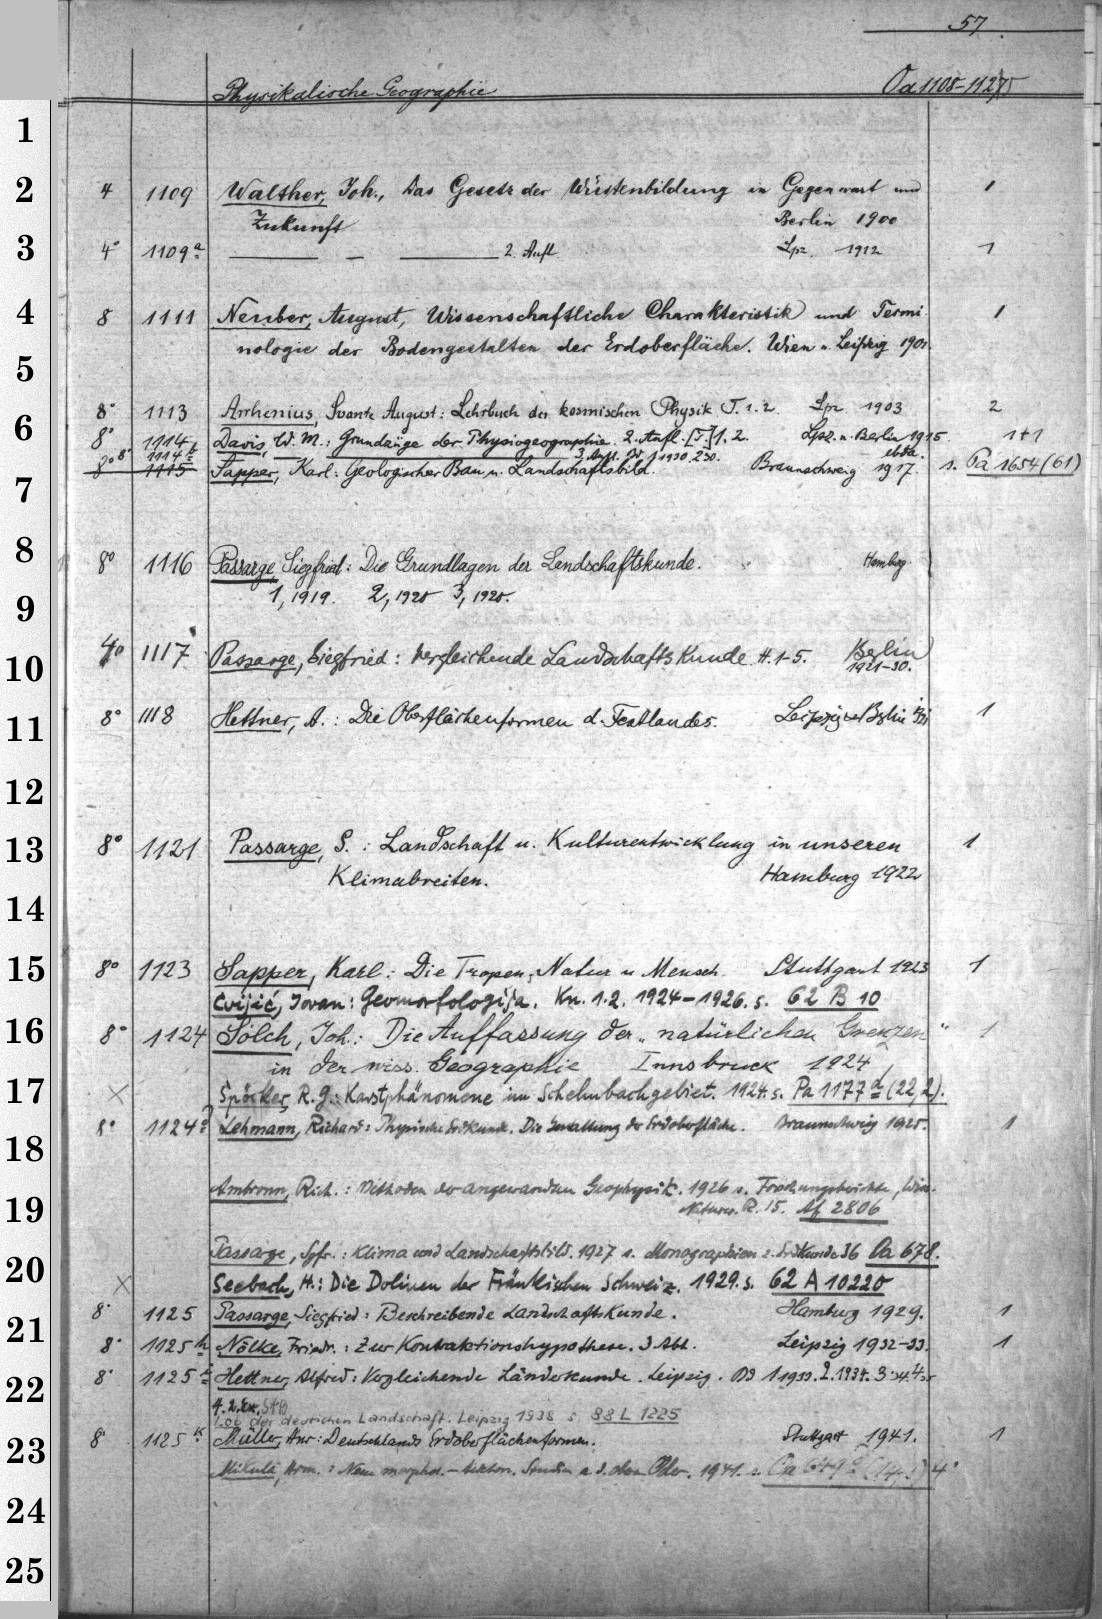 57
Physikalische Geographie Oa 1108-1125
1
2 4 1109 Walther, Joh., Das Gesetz der Wüstenbildung in Gegenwart und 1
Zukunft Berlin 1900
3 4° 1109a — — — 2. Aufl. Lpz. 1912 1
4 8 1111 Neuber, August, Wissenschaftliche Charakteristik und Termi- 1
nologie der Bodengestalten der Erdoberfläche. Wien u. Leipzig 1901.
5
8° 1113 Arrhenius, Svante August: Lehrbuch der kosmischen Physik T. 1. 2. Lpz 1903 2
6 8° 1114 Davis, W. M.: Grundzüge der Physiogeographie. 2. Aufl. [T.] 1. 2. Lpz. u. Berlin 1915. 1+1
8° 1114 3. Aufl. 1 1930. 2 30. ebda.
8° 1115 Sapper, Karl: Geologischer Bau u. Landschaftsbild. Braunschweig 1917. s. Pa 1654 (61)
7
8 8° 1116 Passarge, Siegfried: Die Grundlagen der Landschaftskunde. Hamburg
9 1, 1919. 2, 1920 3, 1920.
10 4° 1117 Passarge, Siegfried: Vergleichende Landschaftskunde. H. 1-5. Berlin
1921-30.
11 8° 1118 Hettner, A.: Die Oberflächenformen d. Festlandes. Leipzig u. Berlin 1
12
13 8° 1121 Passarge, S.: Landschaft u. Kulturentwicklung in unseren 1
Klimabreiten. Hamburg 1922
14
15 8° 1123 Sapper, Karl: Die Tropen, Natur u Mensch. Stuttgart 1923 1
Cvijić, Jovan: Geomorfologija. Kn. 1.2. 1924-1926. s. 62 B 10
16 8° 1124 Sölch, Joh.: Die Auffassung der „natürlichen Grenzen“ 1
in der wiss. Geographie Innsbruck 1924
17 X Spöcker, R. G.: Karstphänomene im Schelmbachgebiet. 1924. s. Pa 1177 d (22,2).
8° 1124a Lehmann, Richard: Physische Erdkunde. Die Gestaltung der Erdoberfläche. Braunschweig 1925. 1
18
Ambronn, Rich.: Methoden der angewandten Geophysik. 1926 s. Forschungsberichte, Wiss.
19 Naturw. R. 15. Af 2806
Passarge, Sgfr.: Klima und Landschaftsbild. 1927 s. Monographien z. Erdkunde 36 Oa 678.
20 X Seebach, H.: Die Dolinen der Fränkischen Schweiz. 1929. s. 62 A 10220
21 8° 1125 Passarge, Siegfried: Beschreibende Landschaftskunde. Hamburg 1929. 1
8° 1125 h Nölke, Friedr.: Zur Kontraktionshypothese. 3 Abh. Leipzig 1932-33. 1
22 8° 1125 i Hettner, Alfred: Vergleichende Länderkunde. Leipzig. Bd 1 1933. 2. 1934. 3 34. 4. 35
Lob der deutschen Landschaft. Leipzig 1938 s 88 L 1225
23 8° 1125 k Müller, Anr: Deutschlands Erdoberflächenformen. Stuttgart 1941. 1
Mikula, Hrm.: Neue morphol.-tekton. Studien a. d. oberen Oder. 1941. s. 4°
24
25